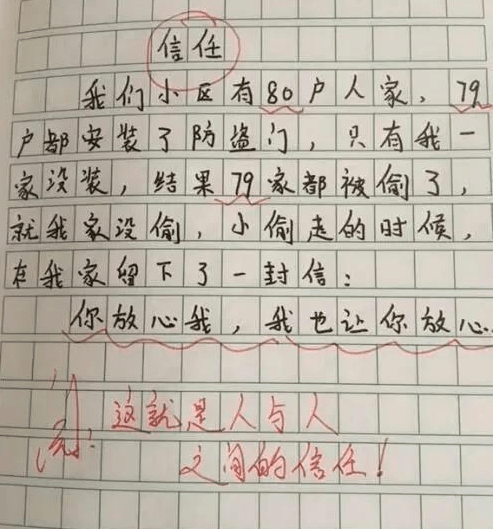 信任
我们小区有80户人家，79
户都安装了防盗门，只有我一
家没装，结果79家都被偷了，
就我家没偷，小偷走的时候，
在我家留下了一封信：
你放心我，我也让你放心.
这就是人与人
之间的信任！